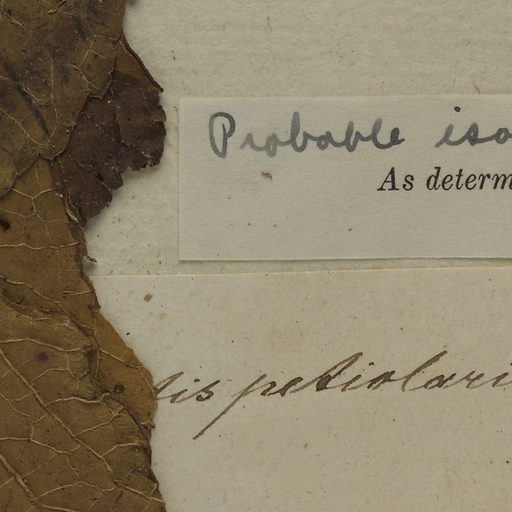 Probable iso
As determ
tis petiolari